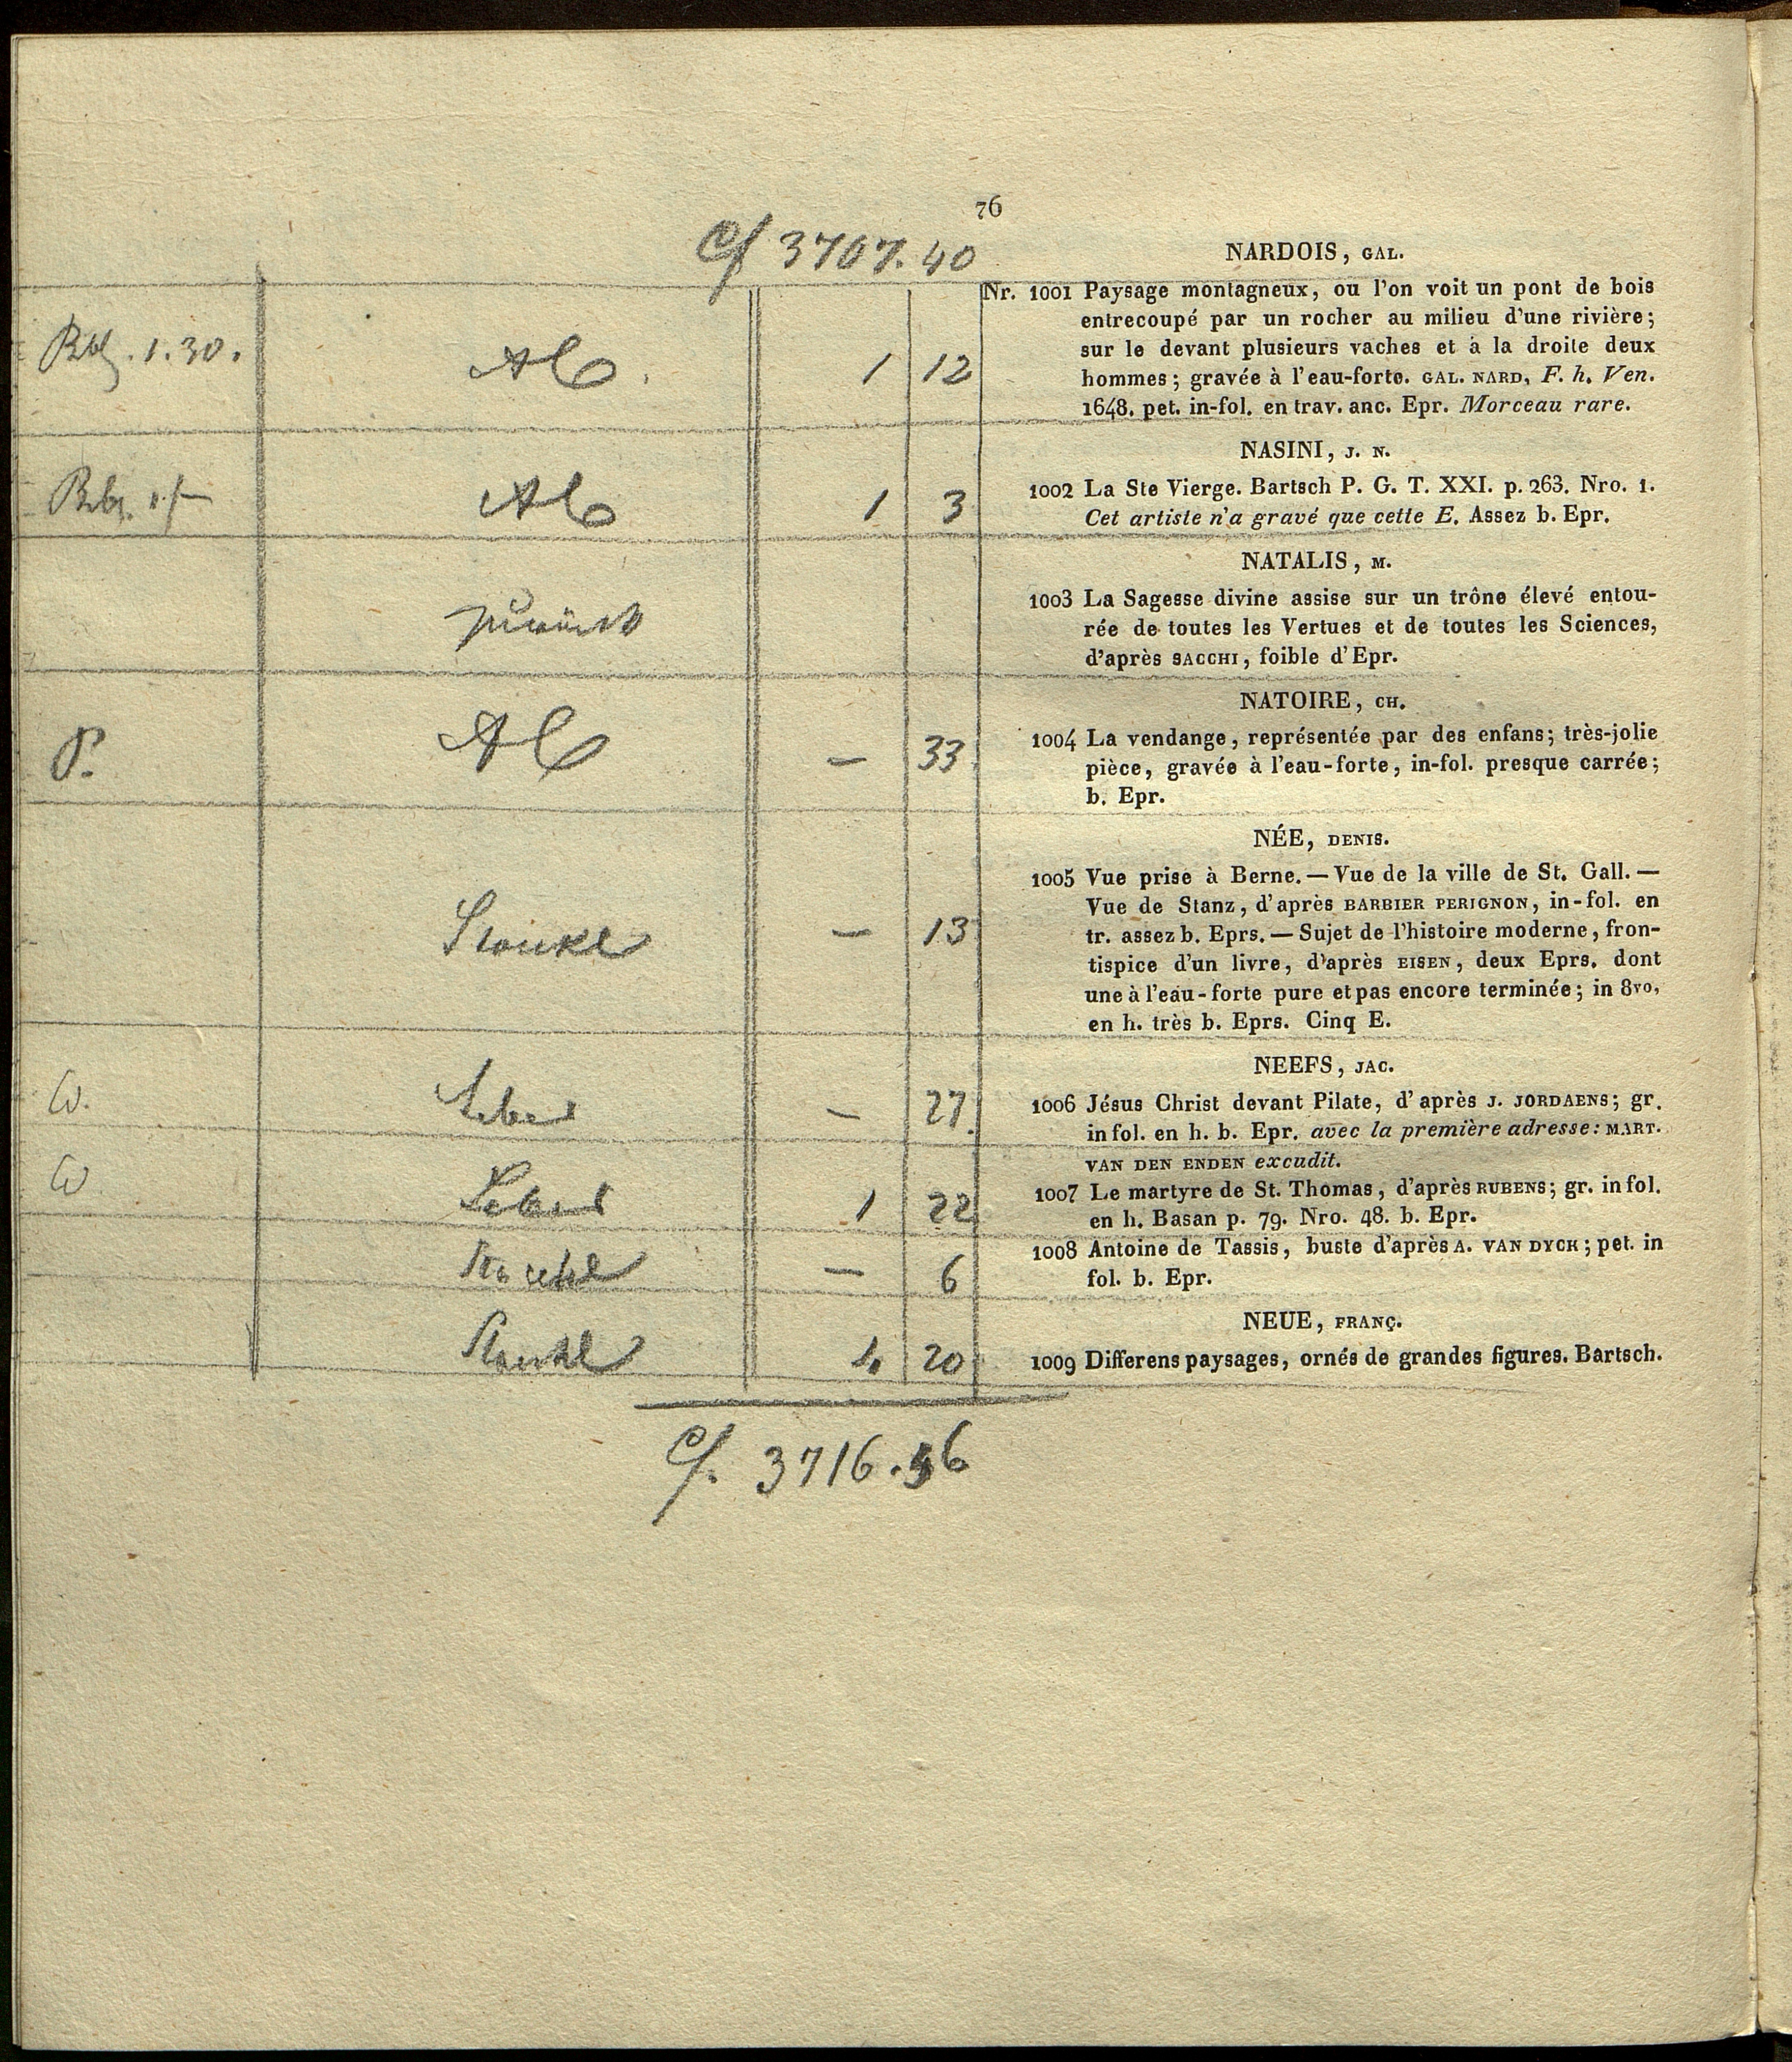 76
Cf 3707.40
NARDOIS, GAL.
Nr. 1001 Paysage montagneux, ou l'on voit un pont de bois
entrecoupé par un rocher au milieu d'une rivière;
sur le devant plusieurs vaches et à la droite deux
hommes; gravée à l'eau-forte. GAL. NARD, F. h. Ven.
1648. pet. in-fol. en trav. anc. Epr. Morceau rare.
1.30.
1 12
NASINI, J. N.
1002 La Ste Vierge. Bartsch P. G. T. XXI. p. 263. Nro. 1.
Cet artiste n'a gravé que cette E. Assez b. Epr.
1 3
NATALIS, M.
1003 La Sagesse divine assise sur un trône élevé entou-
rée de toutes les Vertues et de toutes les Sciences,
d'après SACCHI, foible d'Epr.
zurück
NATOIRE, CH.
1004 La vendange, représentée par des enfans; très-jolie
pièce, gravée à l'eau-forte, in-fol. presque carrée;
b. Epr.
P.
— 33
NÉE, DENIS.
1005 Vue prise à Berne. — Vue de la ville de St. Gall. —
Vue de Stanz, d'après BARBIER PERIGNON, in-fol. en
tr. assez b. Eprs. — Sujet de l'histoire moderne, fron-
tispice d'un livre, d'après EISEN, deux Eprs. dont
une à l'eau-forte pure et pas encore terminée; in 8vo,
en h. très b. Eprs. Cinq E.
— 13
NEEFS, JAC.
1006 Jésus Christ devant Pilate, d'après J. JORDAENS; gr.
in fol. en h. b. Epr. avec la première adresse: MART.
VAN DEN ENDEN excudit.
W.
— 27
1007 Le martyre de St. Thomas, d'après RUBENS; gr. in fol.
en h. Basan p. 79. Nro. 48. b. Epr.
W
1 22
1008 Antoine de Tassis, buste d'après A. VAN DYCK; pet. in
fol. b. Epr.
— 6
NEUE, FRANÇ.
1009 Differens paysages, ornés de grandes figures. Bartsch.
4 20
Cf. 3716.56